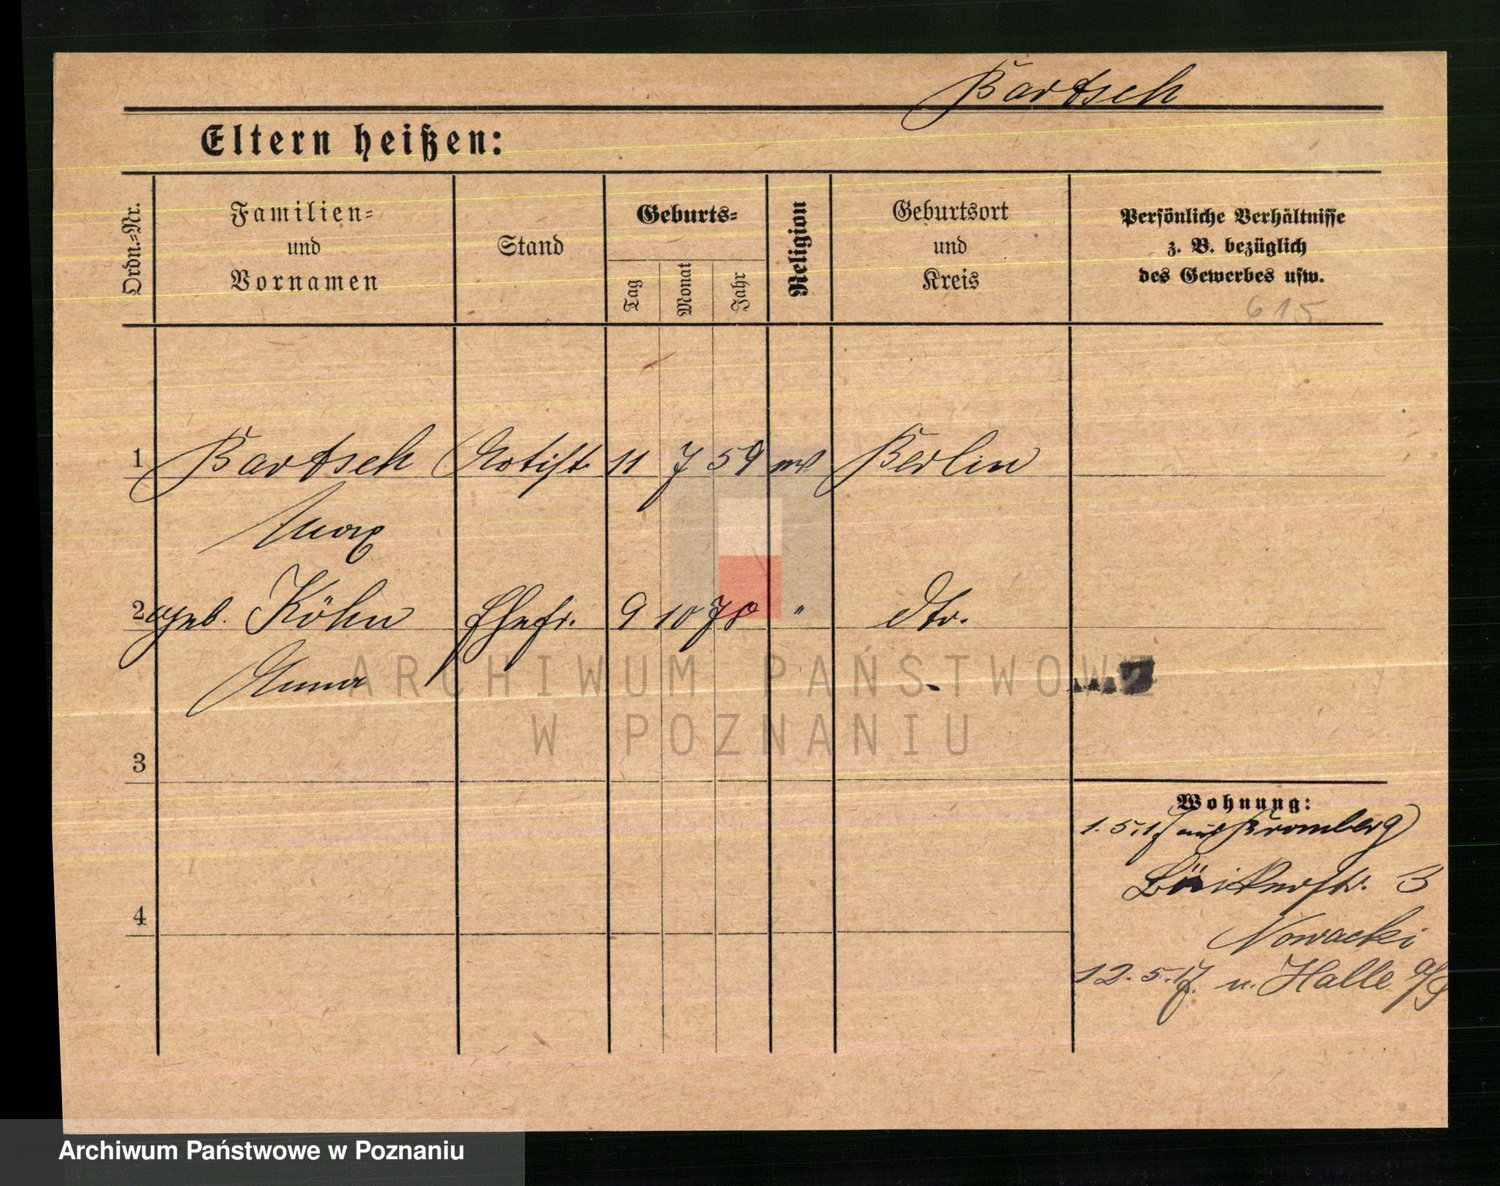 Bartsch
Eltern heißen:
Ordn.-Nr.
Familien-
und
Vornamen
Stand
Geburts-
Tag
Monat
Jahr
Religion
Geburtsort
und
Kreis
Persönliche Verhältnisse
z. B. bezüglich
des Gewerbes usw.
615
1 Bartsch Artist 11 7 59 ev Berlin
Max
2 geb. Köhn Ehefr. 9 10 78 " dto.
Anna
ARCHIWUM PAŃSTWOWE
W POZNANIU
3
Wohnung:
1.5.17 aus Bromberg
3
4
Nowacki
12.5.17. n. Halle a/S
Archiwum Państwowe w Poznaniu